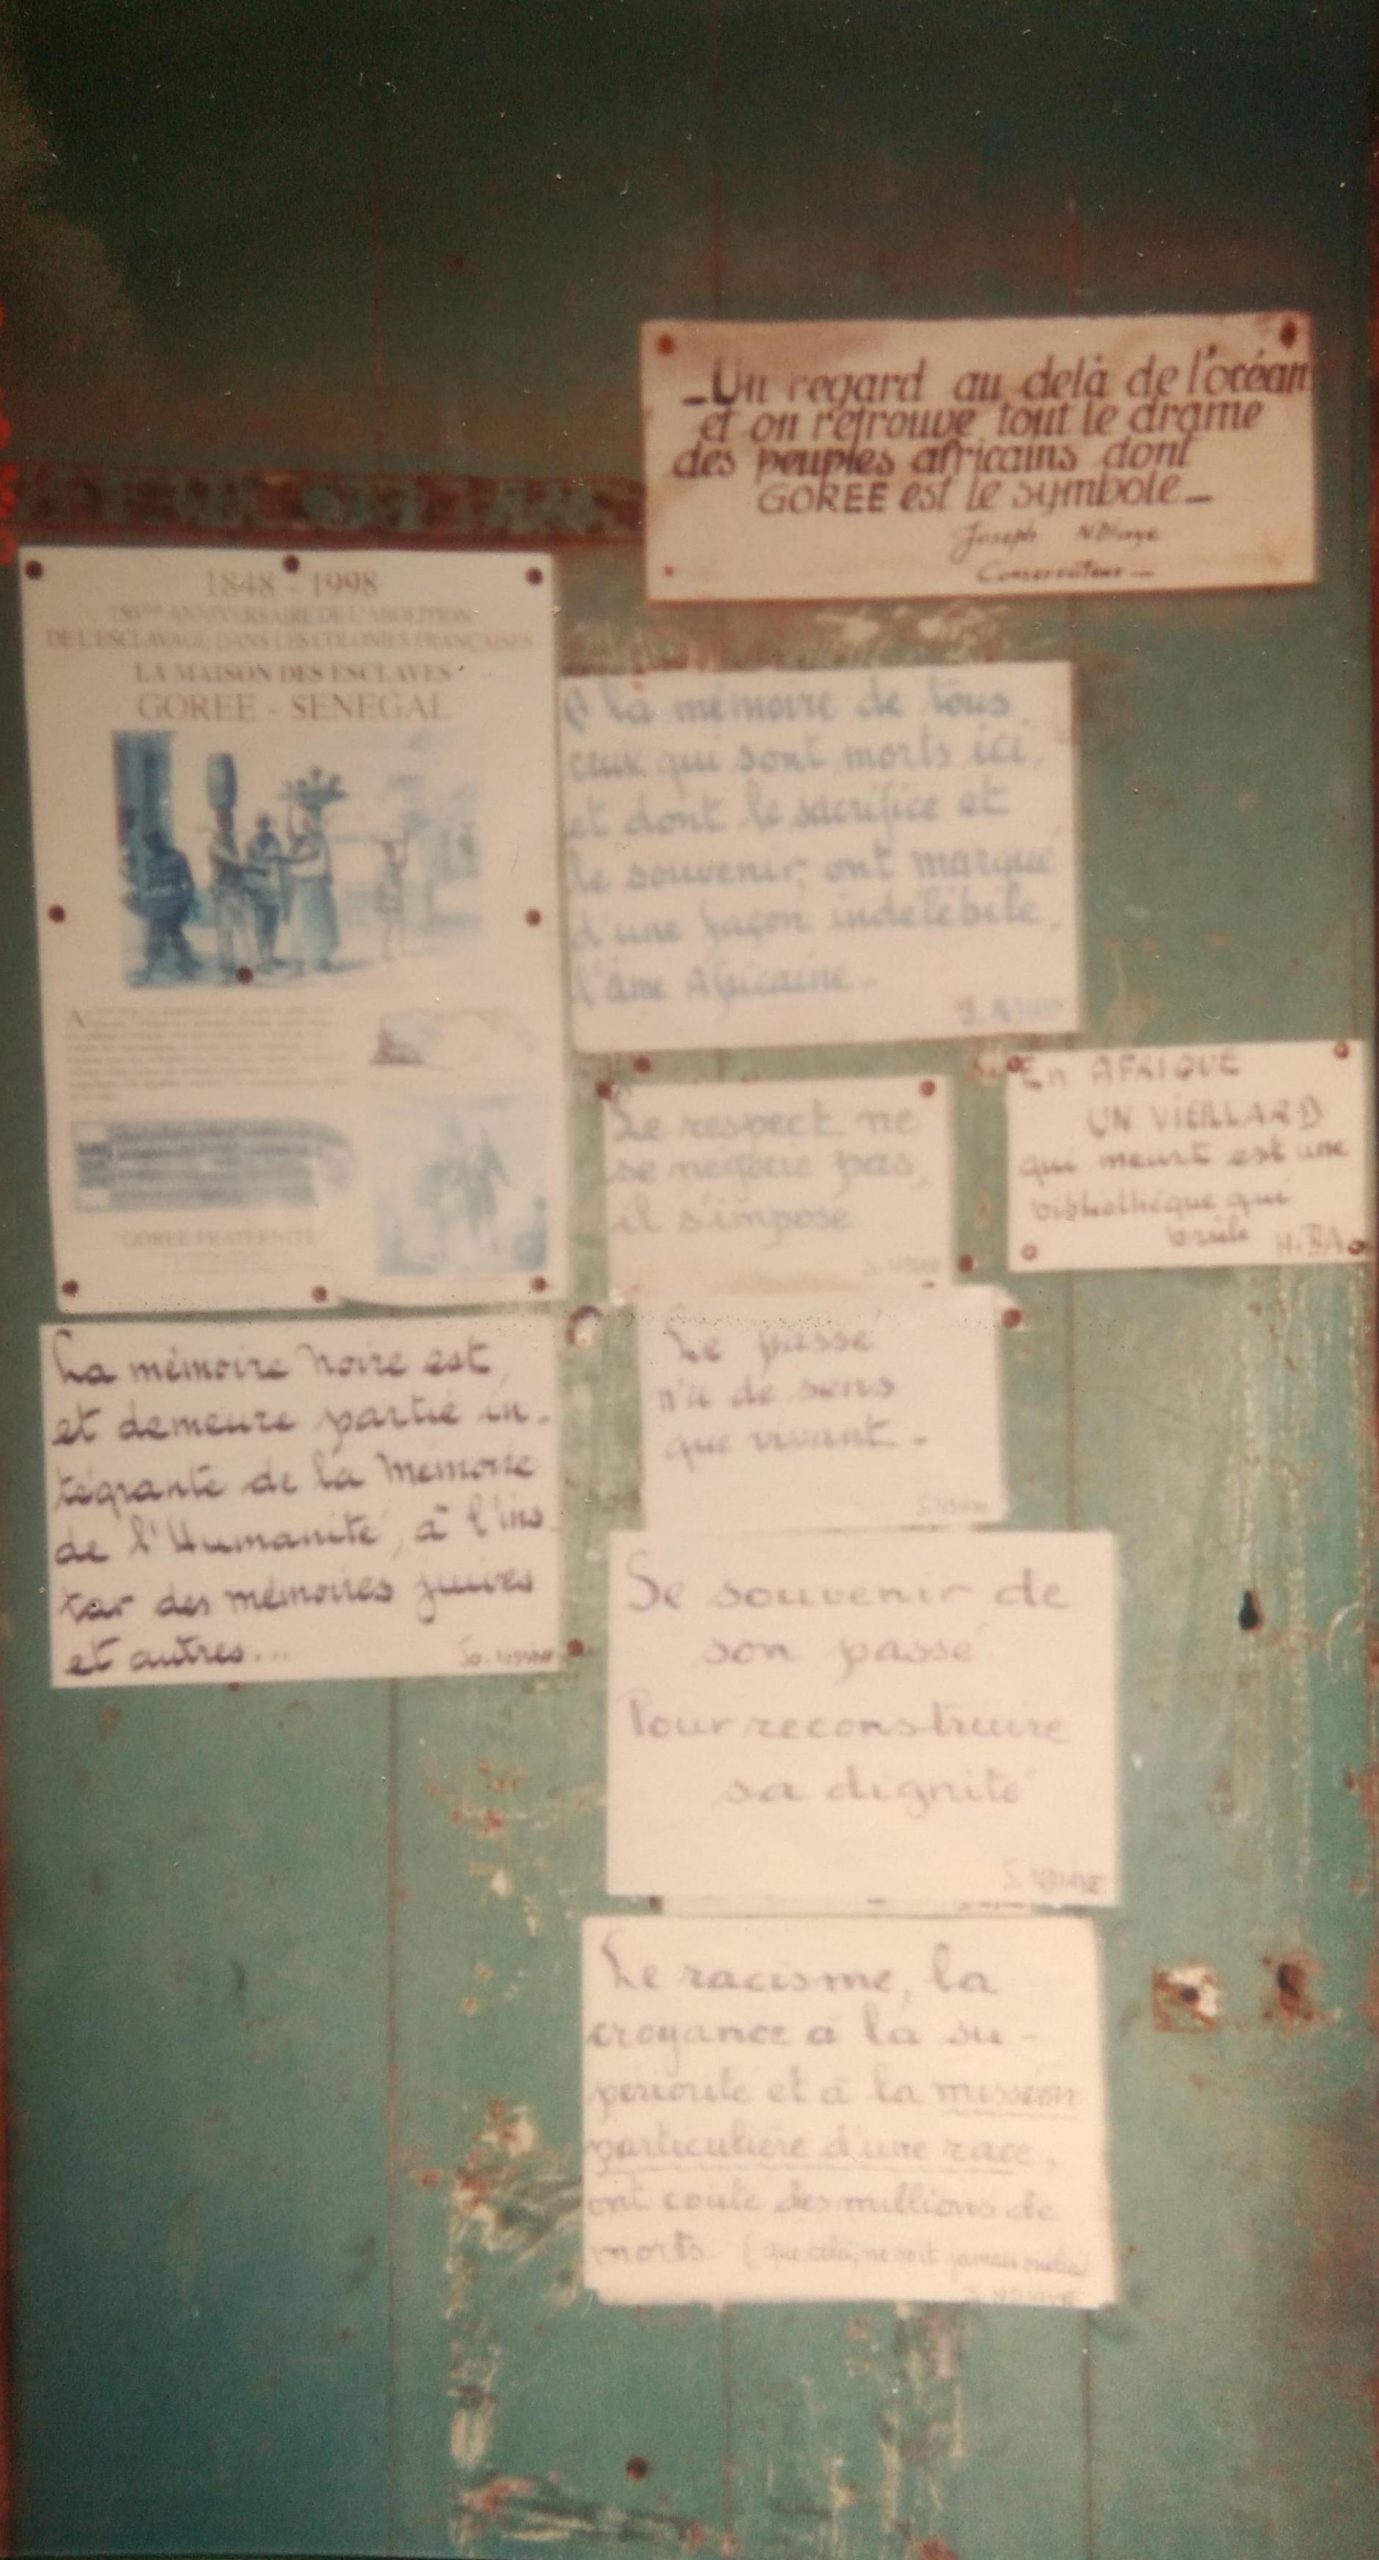 Un regard au delà de l'océan
et on retrouve tout le drame
des peuples africains dont
GOREE est le symbole
Joseph NDiaye
Conservateur
1848 - 1998
150ème ANNIVERSAIRE DE L'ABOLITION
DE L'ESCLAVAGE DANS LES COLONIES FRANÇAISES
LA MAISON DES ESCLAVES
GOREE - SENEGAL
"GOREE FRATERNITE"
A la mémoire de tous
ceux qui sont morts ici,
et dont le sacrifice et
le souvenir, ont marqué
d'une façon indélébile,
l'âme Africaine -
Le respect ne
se négocie pas,
il s'impose
En AFRIQUE
UN VIEILLARD
qui meurt est une
bibliothèque qui
brûle H. BA
Le passé
n'a de sens
que vivant -
La mémoire Noire est,
et demeure partie in-
tégrante de la Mémoire
de l'Humanité, à l'ins-
tar des mémoires juives
et autres...
Se souvenir de
son passé
Pour reconstruire
sa dignité
J. NDIAYE
Le racisme, la
croyance à la su-
périorité et à la mission
particulière d'une race,
ont coûté des millions de
morts (que cela, ne soit jamais oublié)
J. NDIAYE